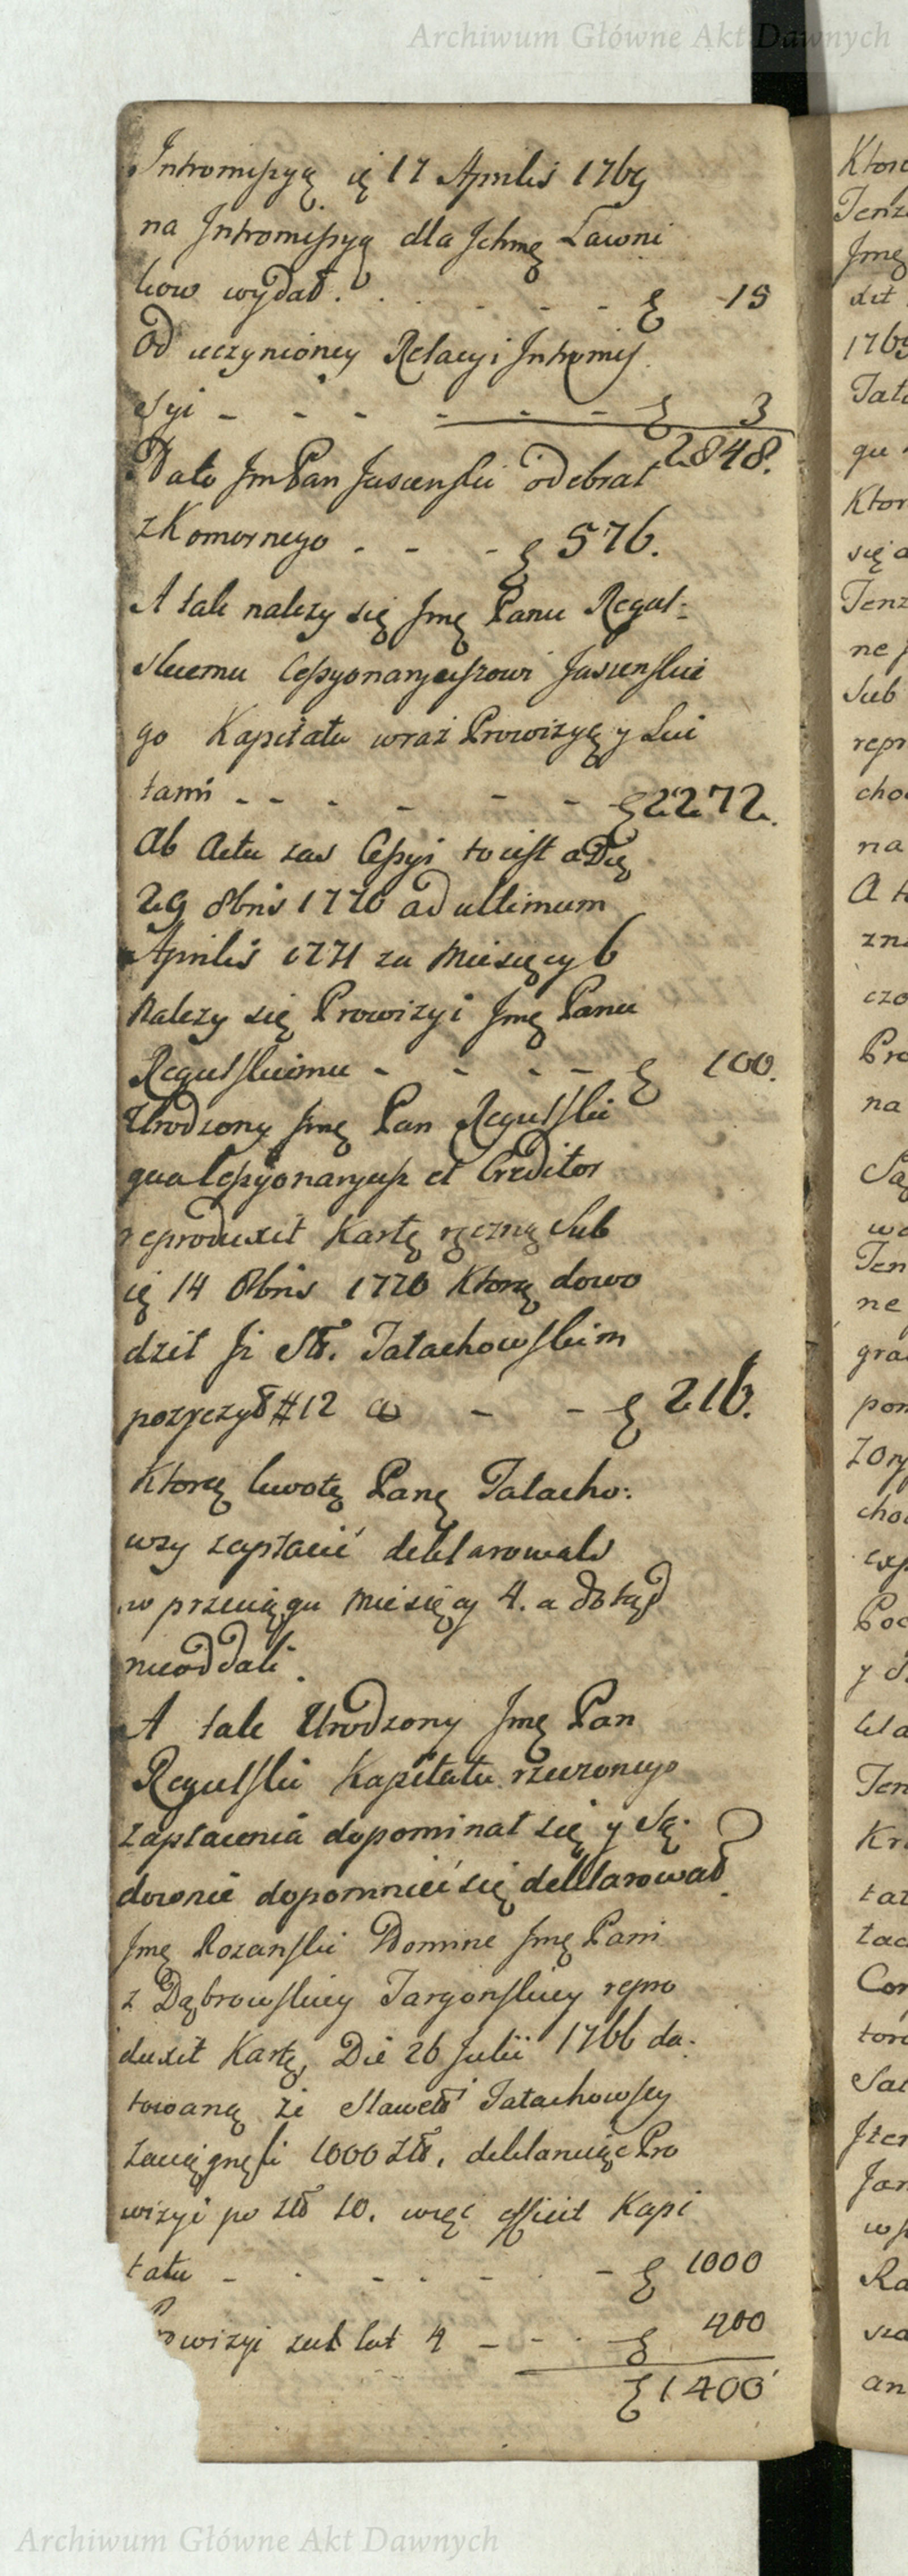 Archiwum Główne Akt Dawnych
Intromissyą ię 17 Aprilis 1769
na Intromissyą dla Ichmę Ławni
kow wydał . . . - - - ξ 15
Od uczynioney Relacyi Intromis
syi - - - - - - ξ 3
2848.
Dato Jm Pan Jasienski odebrał
z Komornego - - - ξ 576.
A tak należy się Jmę Panu Regul:
skiemu Cessyonaryuszowi Jasienskie
go Kapitału wraz Prowizyę y Lui
tami - - - - - - ξ 2272.
Ab Actu zas Cessyi to iest a Dię
29 8bris 1770 ad ultimum
Aprilis 1771 za Miesięcy 6
Należy się Prowizyi Jmę Panu
Regulskiemu - - - - ξ 100.
Urodzony Jmę Pan Regulski
qua Cessyonaryusz et Creditor
reproduxit Kartę ręczną Sub
ię 14 8bris 1770 Ktorą dowo
dził Ji Sł. Tatachowskim
pożyczył # 12 - - ξ 216.
Ktorą kwotę Panę Tatacho:
wsy zapłacić deklarowali
w przeciągu Miesięcy 4. a dotąd
nieoddali.
A tak Urodzony Jmę Pan
Regulski Kapitału rzeczonego
zapłacenia dopominał się y Są:
downie dopomnieć się deklarował
Jmę Rozanski Nomine Jmę Pani
z Dąbrowskiey Targonskiey repro
duxit Kartę, Die 26 Julii 1766 da:
towaną że Sławetł Tatachowscy
zaciągnęli 1000 Zło, deklaruiąc Pro
wizyi po Zło 10. więc efficit Kapi
tału - - - - - - ξ 1000
owizyi lat 4 - - - ξ 400
ξ 1400
Archiwum Główne Akt Dawnych